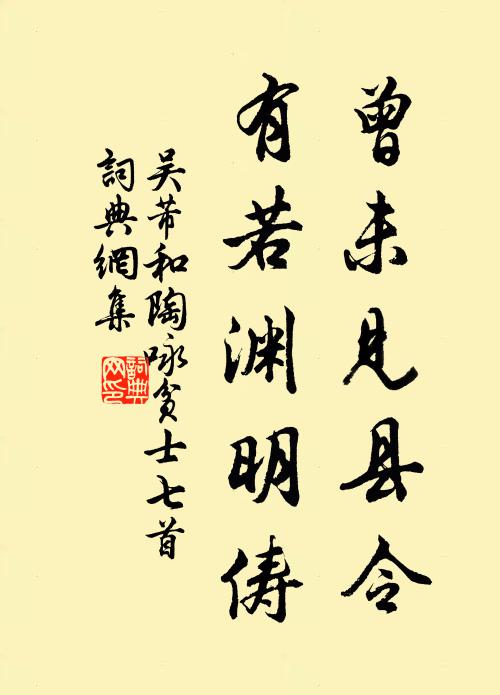 曾未见县令
有若渊明俦
吴芾和陶咏贫士七首
词典網集
詞典网印